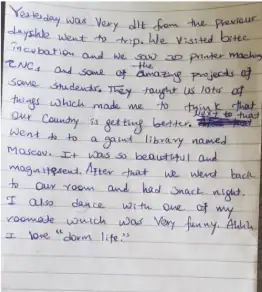 Yesterday was very dit from the previour
dayswe went to trip. We visited bitec
incubation and we saw 3D printer machine
CNC, and some of the amazing projects of
some students. They taught us lots of
things which made me to think that
our country is getting better. next to that
went to to a gaint library named
Moscow. It was so beautiful and
magnificent. After that we went back
to our room and had snack night.
I also dance with one of my
roomate which was very funny. Ahhh
I love "dorm life."